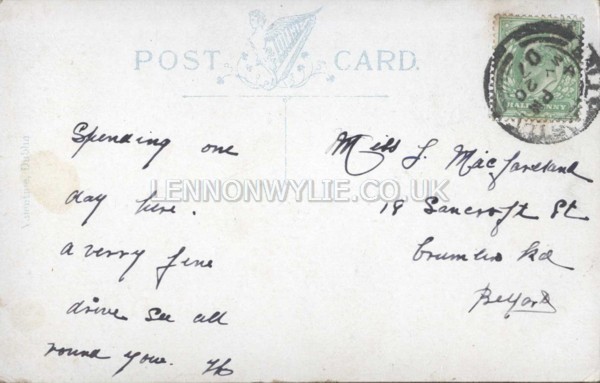 POST CARD.
HALFPENNY
Spending one
day here.
a verry fine
drive see all
round you.
Miss J. MacFareland
LENNONWYLIE.CO.UK
19 Sancroft St
Crumlin Rd
Belfast
Valentine, Dublin